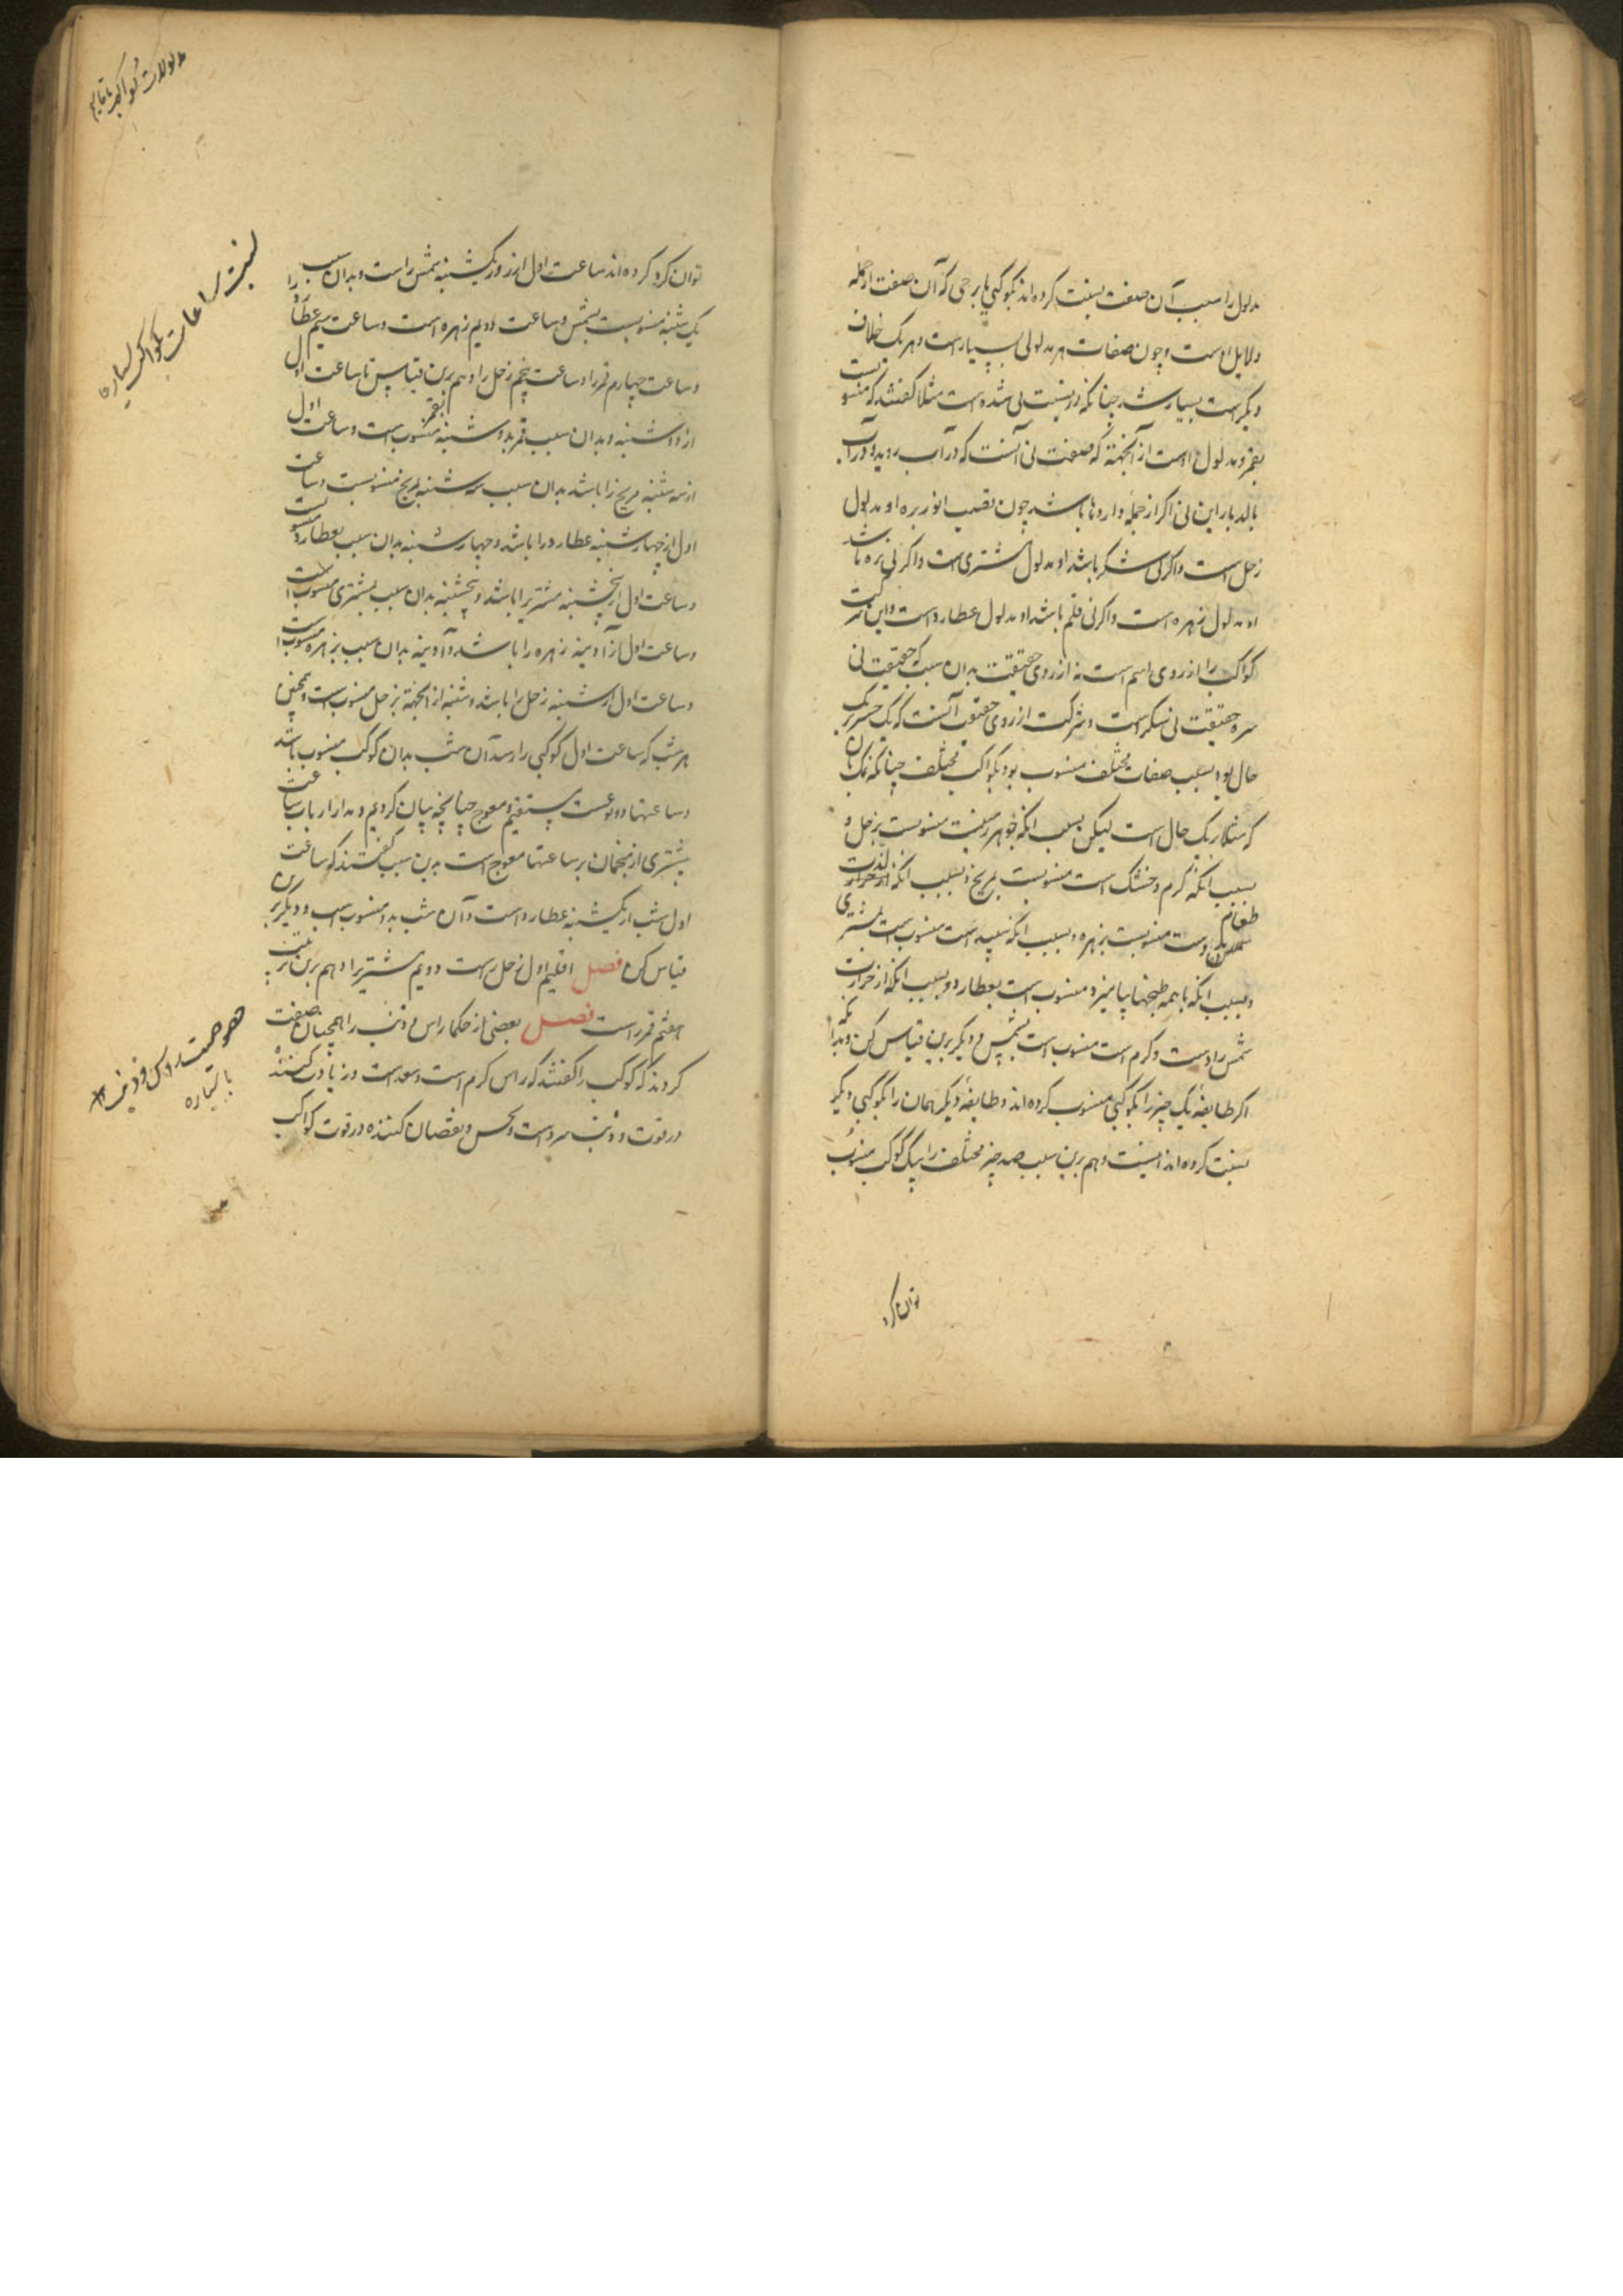 مدلول را سبب آن صفت نسبت کرده اند بکوکبی یا برجی که آن صفت از جمله
دلایل اوست و چون صفات هر مدلولی بسیارست و هر یک خلاف
دیگرست بسیار شد چنانکه در نسبت نی شده است مثلا گفتند که منسوبست
بقمر و مدلول اوست از آنجهة که صفت نی آنست که در آب روید و در آب
بالد باز این نی اگر از جمله داروها باشد چون قصب الذریره او مدلول
زحل است و اگر نی شکر باشد او مدلول مشتری است و اگر نی باشد
او مدلول زهره است و اگر نی قلم باشد او مدلول عطاردست و این شرکت
کواکب را از روی اسم است نه از روی حقیقت بدان سبب که حقیقت نی
حقیقت نی شکرست و شرکت از روی حقیقت آنست که یک چیز بر یک
حال بود بسبب صفات مختلف منسوب بود بکواکب مختلف چنانکه نمک
که مثلا بر یک حال است لیکن بسبب انکه جوهر زمینست منسوبست بزحل و
بسبب انکه گرم و خشک است منسوبست بمریخ و بسبب انکه لذت
طعام دوست منسوبست بزهره و بسبب انکه سپید است منسوب است بمشتری
و بسبب انکه با همه طبخها بیامیزد منسوب است بعطارد و بسبب انکه از حرارت
شمس زادست و گرم است منسوب است بشمس و دیگر برین قیاس کن و بدانکه
اگر طایفه یک چیز را بکوکبی منسوب کرده اند و طایفه دیگر همان را بکوکبی دیگر
نسبت کرده اند اینست و هم برین سبب صد چیز مختلف را بیک کوکب منسوب
توان کرد
مدلولات کواکب
توان کرد کرده اند ساعت اول از روز یکشنبه شمس راست و بدان سبب
یک شنبه منسوبست بشمس و ساعت دویم زهره است و ساعت سیم عطارد را
و ساعت چهارم قمر را و ساعت پنجم زحل را و هم برین قیاس تا ساعت اول
از دوشنبه و بدان سبب دوشنبه بقمر منسوب است و ساعت اول
از سه شنبه مریخ را باشد بدان سبب سه شنبه بمریخ منسوبست و ساعت
اول از چهارشنبه عطارد را باشد و چهارشنبه بدان سبب بعطارد منسوبست
و ساعت اول از پنجشنبه مشتری را باشد و پنجشنبه بدان سبب بمشتری منسوب است
و ساعت اول از آدینه زهره را باشد و آدینه بدان سبب بزهره منسوب است
و ساعت اول از شنبه زحل را باشد و شنبه از انجهة بزحل منسوب است و همچنین
هر شب که ساعت اول کوکبی را رسد آن شب بدان کوکب منسوب باشد
و ساعتها دو نوعست مستقیم و معوج چنانچه بیان کردیم و مدار ارباب ساعت
بیشتری از منجمان بر ساعتها معوج است بدین سبب گفتند که ساعت
اول شب از یکشنبه عطاردست و آن شب بدو منسوب است و دیگر برین
قیاس کن فصل اقلیم اول زحل راست دویم مشتری را و هم برین ترتیب
هفتم قمر راست فصل بعضی از حکما راس و ذنب را همچنان صفت
کردند که کوکب را گفتند که راس گرم است و سعد است و زیادت کننده
در قوت و ذنب سردست و نحس و نقصان کننده در قوت کواکب
نسبت ساعات بکواکب سیاره
با سیاره